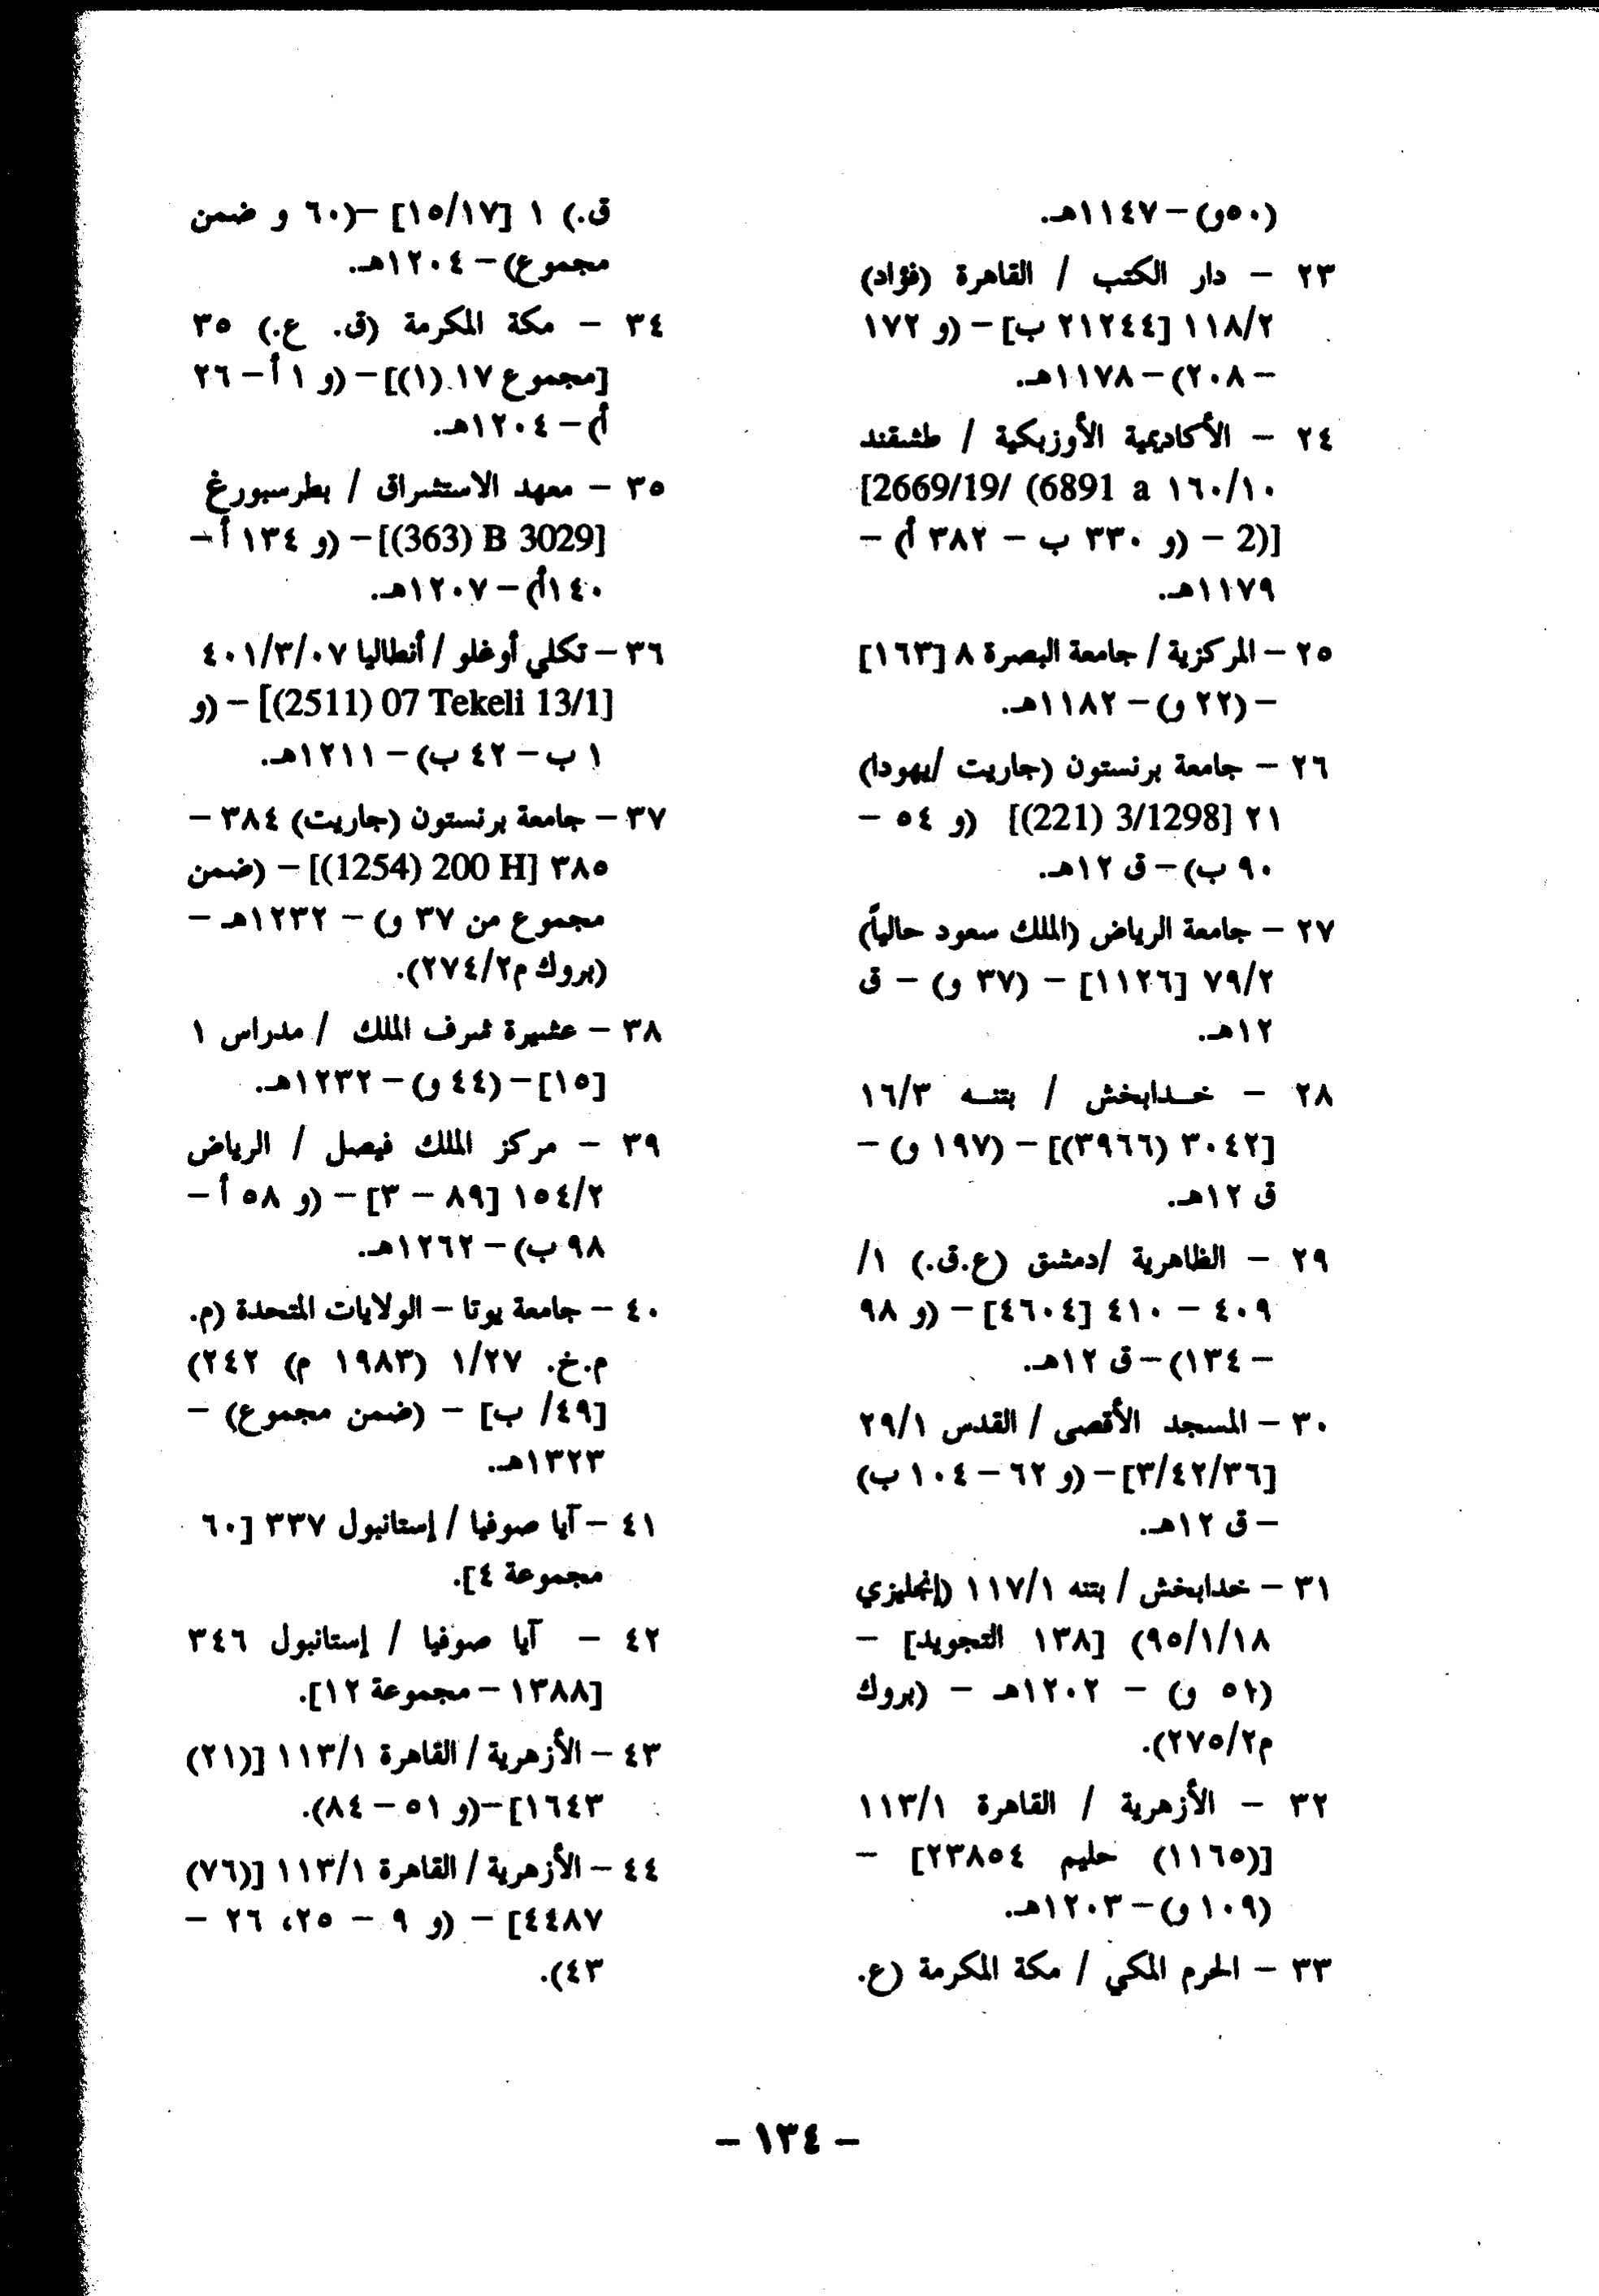 (٥٠و) – ١١٤٧هـ.
٢٣ – دار الكتب / القاهرة (فؤاد)
١١٨/٢ [٢١٢٤٤ ب] – (و ١٧٢
– ٢٠٨) – ١١٧٨هـ.
٢٤ – الأكاديمية الأوزبكية / طشقند
١٦٠/١٠ [2669/19/ (6891 a
2)] – (و ٣٣٠ ب – ٣٨٢ أ) –
١١٧٩هـ.
٢٥ – المركزية / جامعة البصرة ٨ [١٦٣]
– (٢٢ و) – ١١٨٢هـ.
٢٦ – جامعة برنستون (جاريت /يهودا)
٢١ [3/1298 (221)] (و ٥٤ –
٩٠ ب) – ق ١٢هـ.
٢٧ – جامعة الرياض (الملك سعود حالياً)
٧٩/٢ [١١٢٦] – (٣٧ و) – ق
١٢هـ.
٢٨ – خـدابخش / بتنـه ١٦/٣
[٣٠٤٢ (٣٩٦٦)] – (١٩٧ و) –
ق ١٢هـ.
٢٩ – الظاهرية /دمشق (ع.ق.) ١/
٤٠٩ – ٤١٠ [٤٦٠٤] – (و ٩٨
– ١٣٤) – ق ١٢هـ.
٣٠ – المسجد الأقصى / القدس ٢٩/١
[٣/٤٢/٣٦] – (و ٦٢ – ١٠٤ ب)
– ق ١٢هـ.
٣١ – خدابخش / بتنه ١١٧/١ (إنجليزي
٩٥/١/١٨) [١٣٨ التجويد] –
(٥١ و) – ١٢٠٢هـ – (بروك
م٢٧٥/٢).
٣٢ – الأزهرية / القاهرة ١١٣/١
[(١١٦٥) حليم ٢٣٨٥٤] –
(١٠٩ و) – ١٢٠٣هـ.
٣٣ – الحرم المكي / مكة المكرمة (ع.
ق.) ١ [١٥/١٧] –(٦٠ و ضمن
مجموع) – ١٢٠٤هـ.
٣٤ – مكة المكرمة (ق. ع.) ٣٥
[مجموع ١٧ (١)] – (و ١ أ – ٢٦
أ) – ١٢٠٤هـ.
٣٥ – معهد الاستشراق / بطرسبورغ
[B 3029 (363)] – (و ١٣٤ أ –
١٤٠أ) – ١٢٠٧هـ.
٣٦ – تكلي أوغلو / أنطاليا ٤٠١/٣/٠٧
[07 Tekeli 13/1 (2511)] – (و
١ ب – ٤٢ ب) – ١٢١١هـ.
٣٧ – جامعة برنستون (جاريت) ٣٨٤ –
٣٨٥ [200 H (1254)] – (ضمن
مجموع من ٣٧ و) – ١٢٣٢هـ –
(بروك م٢٧٤/٢).
٣٨ – عشيرة شرف الملك / مدراس ١
[١٥] – (٤٤ و) – ١٢٣٢هـ.
٣٩ – مركز الملك فيصل / الرياض
١٥٤/٢ [٨٩ – ٣] – (و ٥٨ أ –
٩٨ ب) – ١٢٦٢هـ.
٤٠ – جامعة يوتا – الولايات المتحدة (م.
م.خ. ١/٢٧ (١٩٨٣ م) ٢٤٢)
[٤٩/ ب] – (ضمن مجموع) –
١٣٢٣هـ.
٤١ – آيا صوفيا / إستانبول ٣٣٧ [٦٠
مجموعة ٤].
٤٢ – آيا صوفيا / إستانبول ٣٤٦
[١٣٨٨ – مجموعة ١٢].
٤٣ – الأزهرية / القاهرة ١١٣/١ [(٢١)
١٦٤٣] –(و ٥١ – ٨٤).
٤٤ – الأزهرية / القاهرة ١١٣/١ [(٧٦)
٤٤٨٧] – (و ٩ – ٢٥، ٢٦ –
٤٣).
– ١٣٤ –